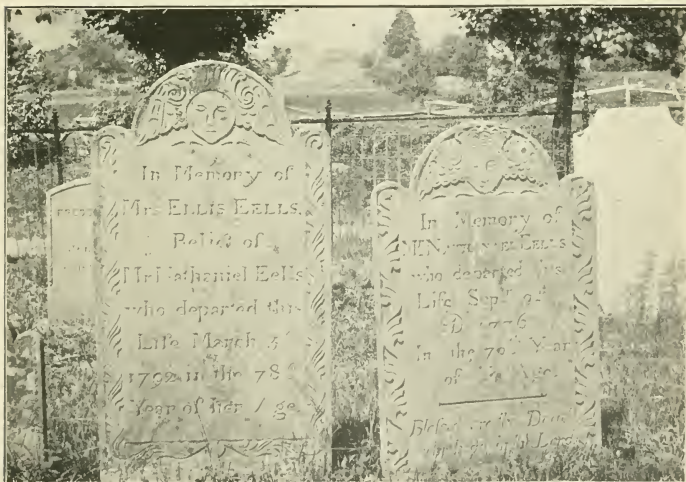 In Memory of
Mrs ELLIS EELLS,
Relict of
Mr Nathaniel Eells
who departed this
Life March 3d
1792 in the 78th
Year of her Age
In Memory of
Mr NATHANIEL EELLS
who departed this
Life Sept 9th
D 1776
In the 70th Year
of His Age.
Blessed are the Dead
in ye Lord